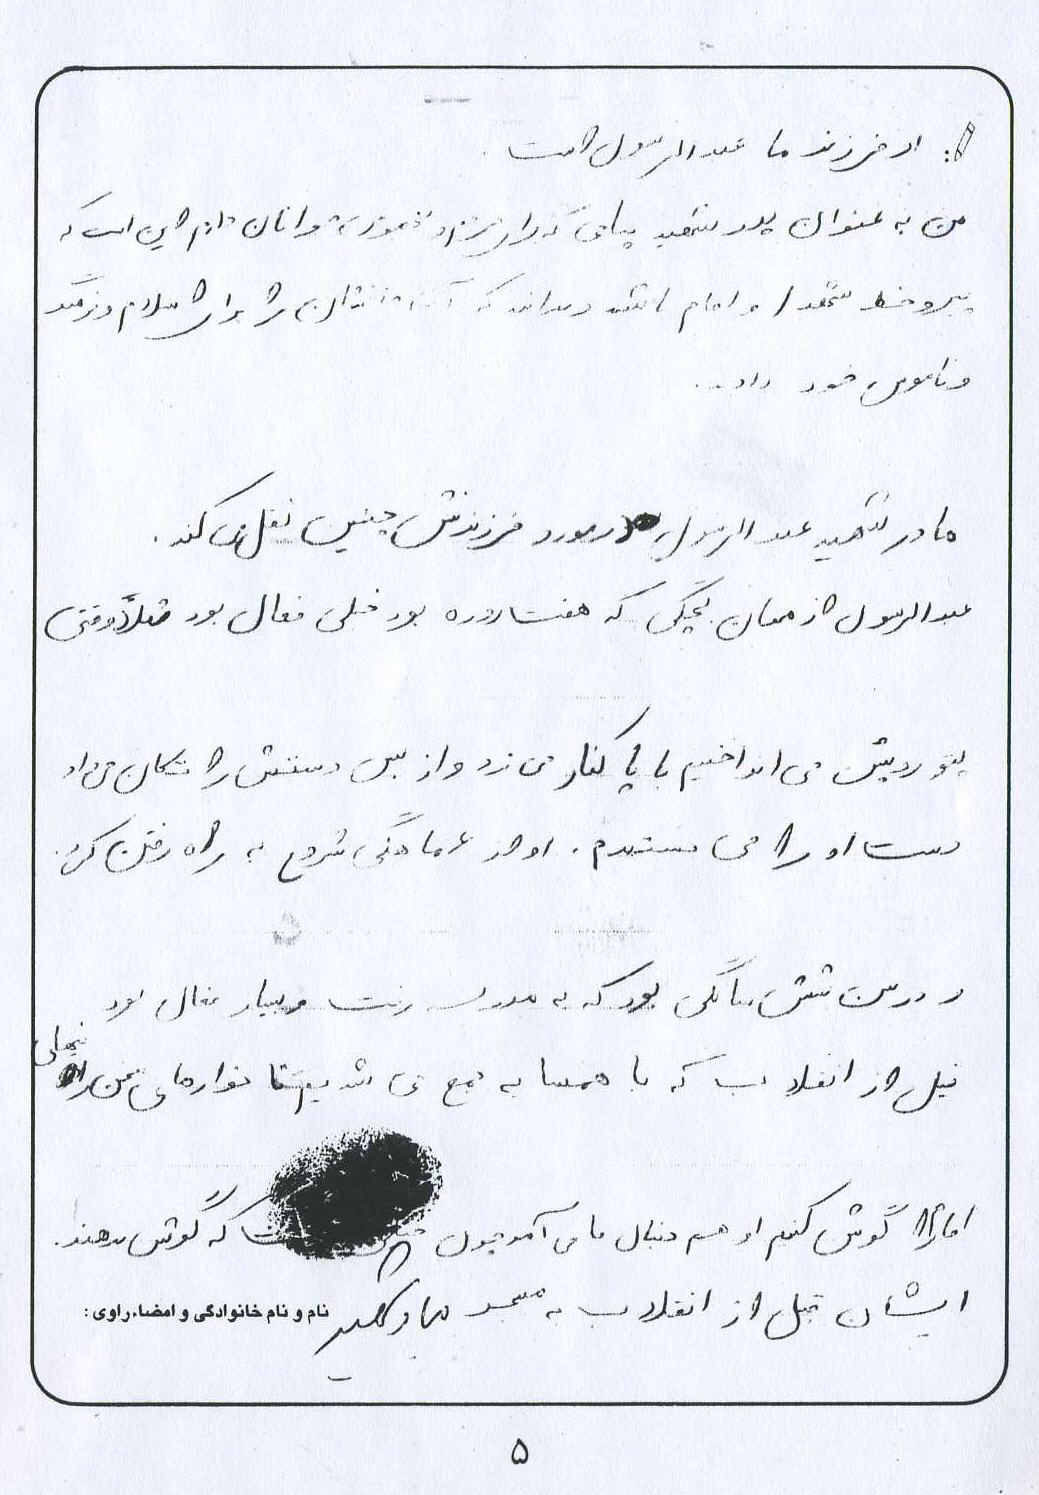 : از فرزند ما عبدالرسول است.
من به عنوان پدر شهید پیامی که برای مردم و جوانان دارم این است که
پیرو خط شهدا و امام باشند و بدانند که آنها جانشان را برای اسلام و
و ناموس خود دادند.
مادر شهید عبدالرسول در مورد فرزندش چنین نقل می کند.
عبدالرسول از همان بچگی که هفت روزه بود خیلی فعال بود مثلاً وقتی
پتو رویش می انداختیم با پا کنار می زد و از بس دستش را تکان می داد
دست او را می بستم. او در ماهگی شروع به راه رفتن کرد.
و در سن شش سالگی بود که به مدرسه رفت و بسیار فعال بود
قبل از انقلاب که با همسایه جمع می شدیم تا نوارهای
امام را گوش کنیم او هم دنبال ما می آمد چون که گوش بدهند.
ایشان قبل از انقلاب به مسجد
نام و نام خانوادگی و امضاء راوی :
۵